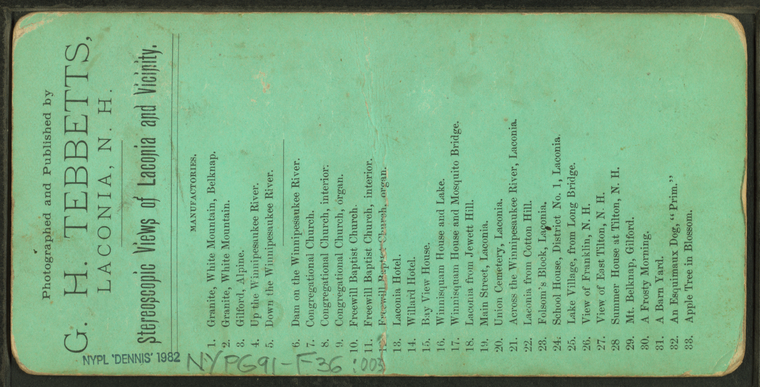 Photographed and Published by
G. H. TEBBETTS,
LACONIA, N. H.
Stereoscopic Views of Laconia and Vicinity.
MANUFACTORIES.
1. Granite, White Mountain, Belknap.
2. Granite, White Mountain.
3. Gilford, Alpine.
4. Up the Winnipesaukee River.
5. Down the Winnipesaukee River.
6. Dam on the Winnipesaukee River.
7. Congregational Church.
8. Congregational Church, interior.
9. Congregational Church, organ.
10. Freewill Baptist Church.
11. Freewill Baptist Church, interior.
12. Freewill Baptist Church, organ.
13. Laconia Hotel.
14. Willard Hotel.
15. Bay View House.
16. Winnisquam House and Lake.
17. Winnisquam House and Mosquito Bridge.
18. Laconia from Jewett Hill.
19. Main Street, Laconia.
20. Union Cemetery, Laconia.
21. Across the Winnipesaukee River, Laconia.
22. Laconia from Cotton Hill.
23. Folsom's Block, Laconia.
24. School House, District No. 1, Laconia.
25. Lake Village, from Long Bridge.
26. View of Franklin, N. H.
27. View of East Tilton, N. H.
28 Summer House at Tilton, N. H.
29. Mt. Belknap, Gilford.
30. A Frosty Morning.
31. A Barn Yard.
32. An Esquimaux Dog, "Prim."
33. Apple Tree in Blossom.
NYPL 'DENNIS' 1982
NYPG91-F36:003